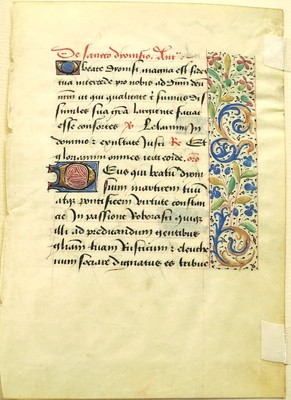 De sancto dyonisio. Ant
O beate dyonisi magna est fides
tua intercede pro nobis ad dominum deum
nostrum ut qui qualitate sumus dis
similes sua gracia largiente faciat
esse consortes Letamini In
domino et exultate Justi Et
gloriamini omnes recti corde. oro
Deus qui beatum dyoni
sium martirem tuum
atque pontificem virtute constan
cie In passione roborasti quique
illi ad predicandum gentibus
gloriam tuam rusticum et eleuthe
rium sociare dignatus es tribue